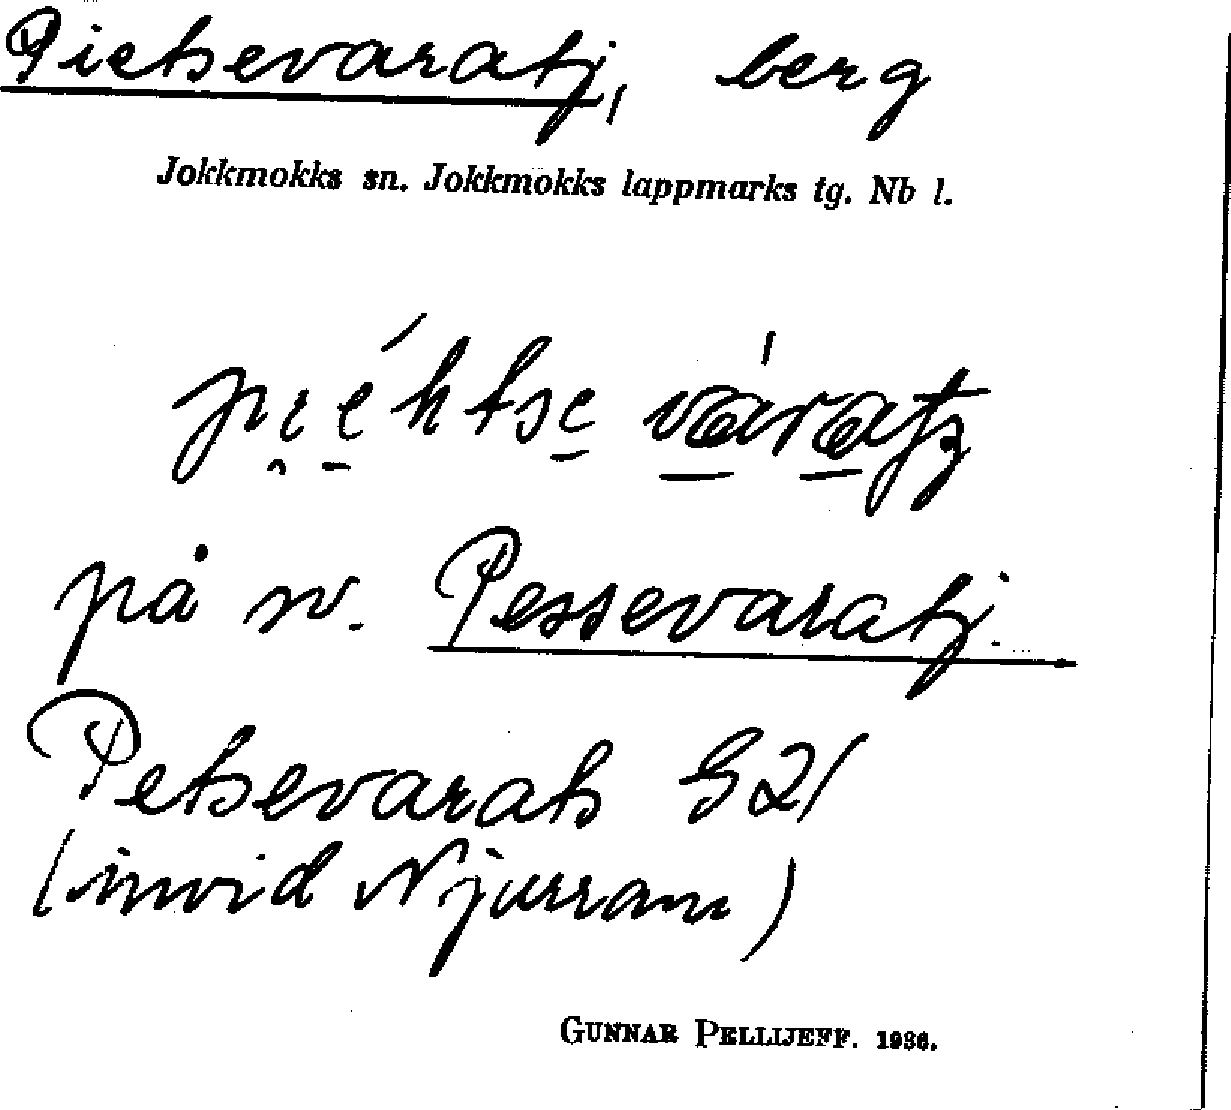 Pietsevaratj, berg
Jokkmokks sn. Jokkmokks lappmarks tg. Nb l.
piéhtse váratj
på sv. Pessevaratj.
Petsevarats G21
(invid Njurram)
GUNNAR PELLIJEFF. 1936.